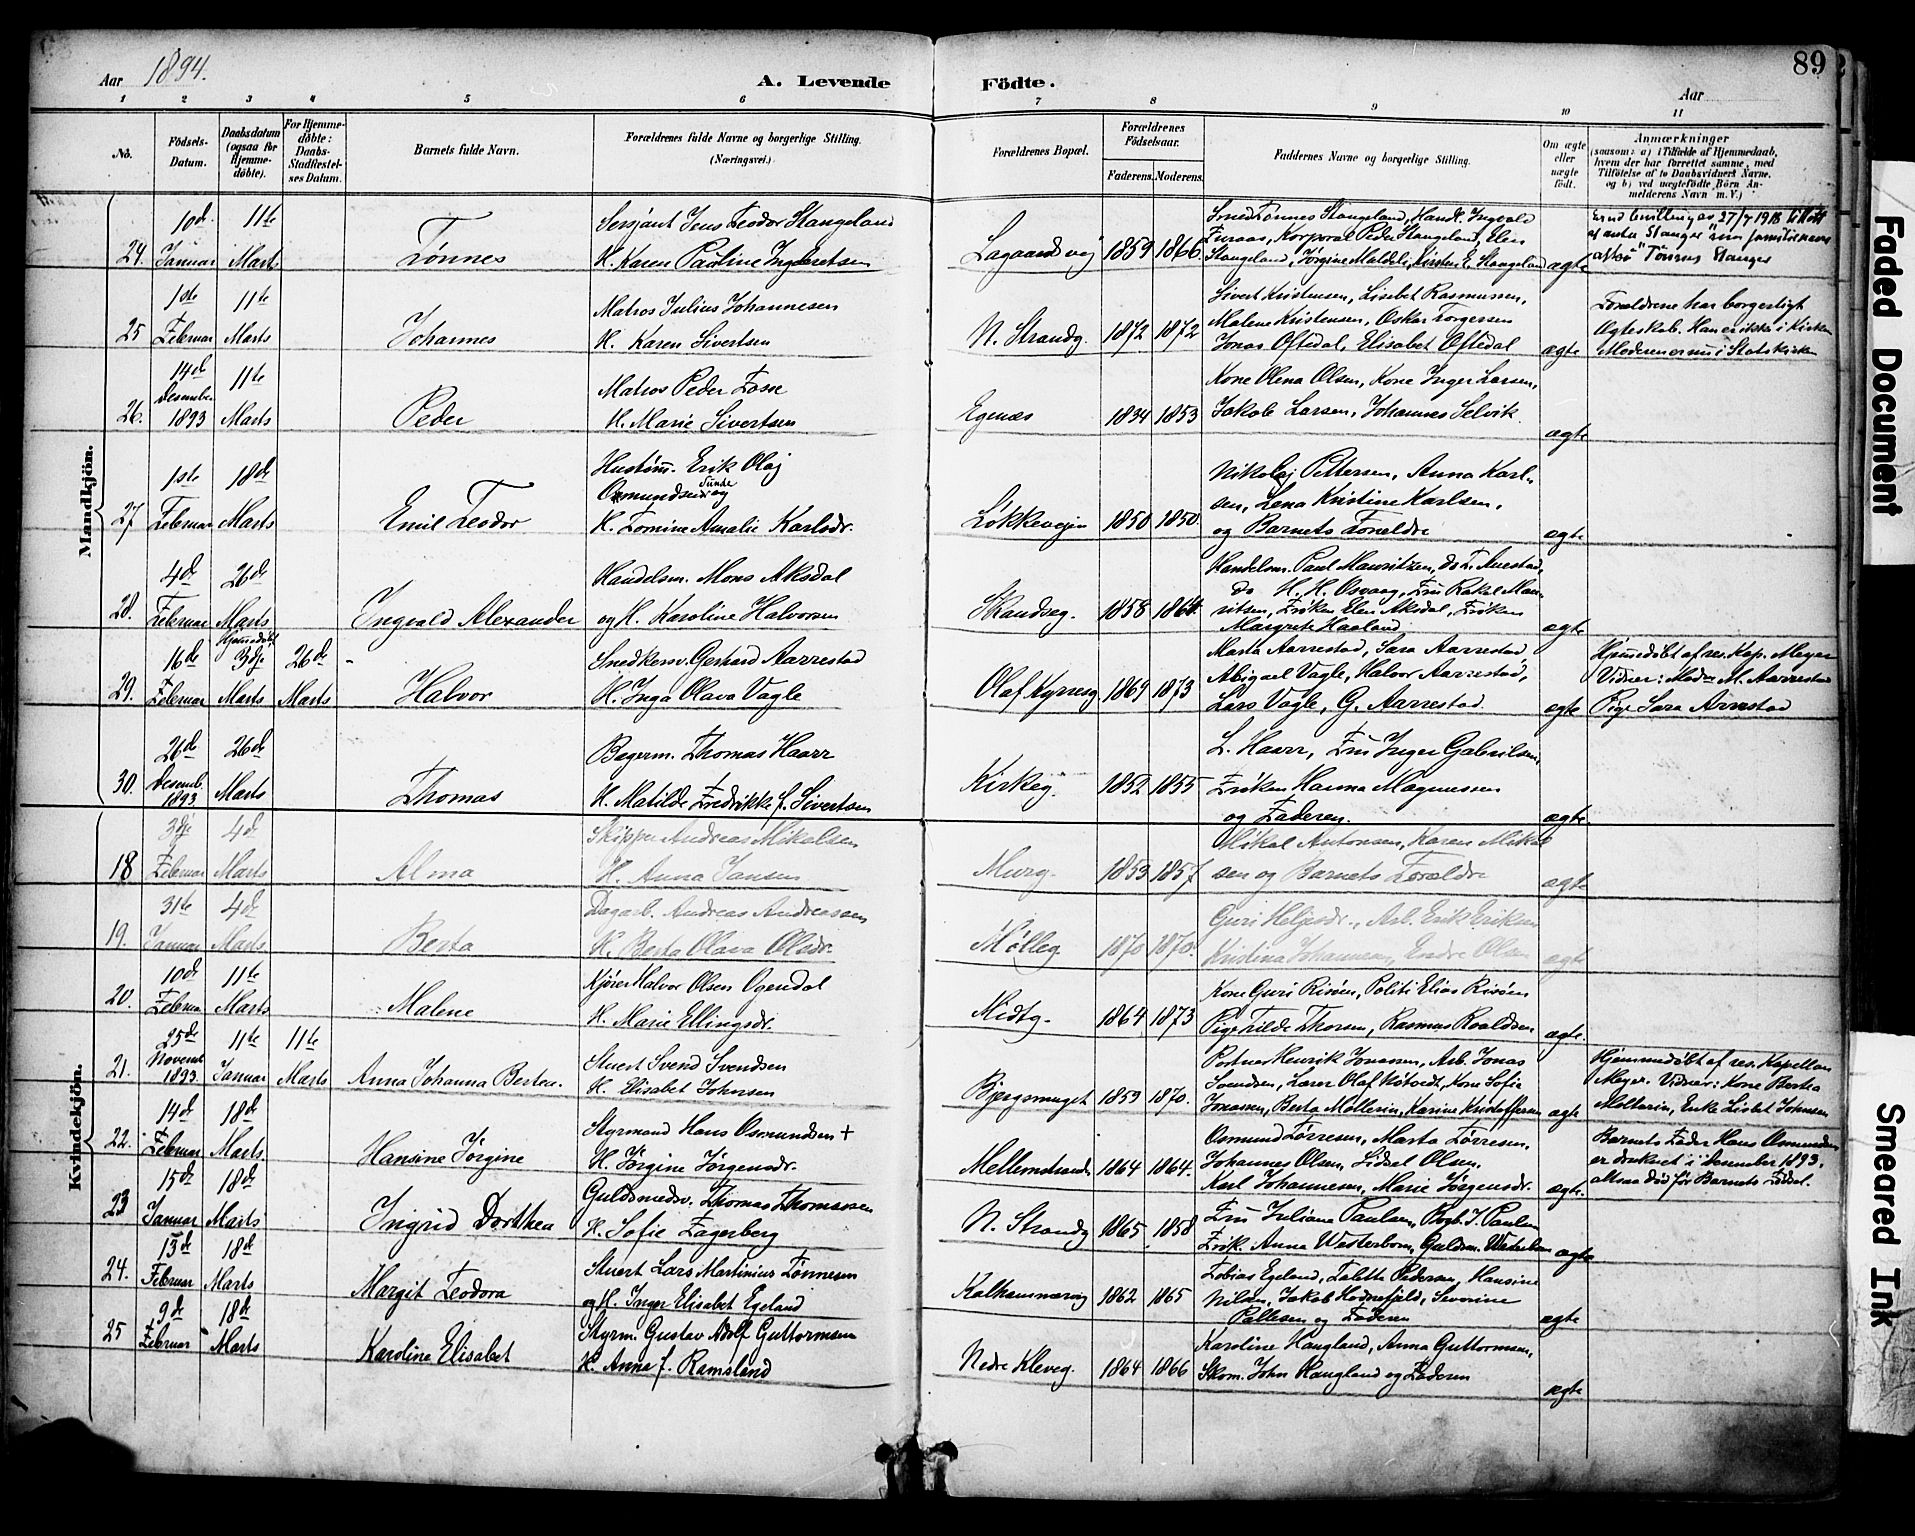 89
Aar 1894.
A. Levende Födte.
Aar
1 2 3 4 5 6 7 8 9 10 11
No.
Födsels-Datum.
Daabsdatum (ogsaa for Hjemme-döbte).
For Hjemme-döbte: Daabs-Stadfæstel-ses Datum.
Barnets fulde Navn.
Forældrenes fulde Navne og borgerlige Stilling. (Næringsvei.)
Forældrenes Bopæl.
Forældrenes Födselsaar.
Faderens. Moderens.
Faddernes Navne og borgerlige Stilling.
Om ægte eller uægte födt.
Anmærkninger
(saasom: a) i Tilfælde af Hjemmedaab,
hvem der har forrettet samme, med
Tilföielse af to Daabsvidners Navne.
og b) ved uægtefödte Börn An-
melderens Navn m. V.)
Mandkjön.
24. 10de Januar 11te Marts
Tønnes
Sersjant Jens Teodor Stangeland
H. Karen Pauline Ingebretsen
Lagaardsvej 1859 1866
Tønnes Stangeland, Handl. Ingvald
Furaas, Korporal Peder Stangeland, Elen
Stangeland, Jorgine Maldeli, Kirsten E. Stangeland
ægte
27/7 1918
Stanger
Tønnes Stanger
25 1ste Februar 11te Marts
Johannes
Matros Julius Johannesen
H. Karen Sivertsen
N. Strandg. 1872 1872
Sivert Kristensen, Lisebet Rasmussen,
Malene Kristensen, Oskar Torgersen
Jonas Oftedal, Elisabet Oftedal
ægte
Foreldrene har borgerligt
Ægteskab. Han er ikke i Kirken
Moderen er nu i Statskirken
26. 14de Desember 1893 11te Marts
Peder
Matros Peder Tosse
H. Marie Sivertsen
Egenæs 1834 1853
Kone Olena Olsen, Kone Inger Larsen,
Jakob Larsen, Johannes Selvik
ægte
27 1ste Februar 18de Marts
Emil Teodor
Hustøm. Erik Olaj
Osmundsen Sunde og
H. Tomine Amalie Karlsdr.
Løkkevejen 1850 1850.
Nikolaj Pettersen, Anna Karl-
sen, Lena Kristine Karlsen,
og Barnets Foreldre
ægte
28. 4de Februar 26de Marts
Ingvald Alexander
Handelsm. Mons Aksdal
og H. Karoline Halvorsen
Skandseg. 1858 1864.
Handelsm. Paul Mauritzen, do T. Auestad,
Do H. H. Osvaag, Fru Rakel Mau-
ritsen, Frøken Elen Aksdal, Frøken
Margrete Haaland
ægte
29. 16de Februar Hjemmedøbt 3dje Marts 26de Marts
Halvor
Snedkersv. Gerhard Aarrestad
H. Inga Olava Vagle
Olaf Kyrresg 1869 1873
Maria Aarrestad, Sara Aarrestad
Abigael Vagle, Halvor Aarrestad,
Lars Vagle, G. Aarrestad.
ægte
Hjemedøbt af res. Kap. Meyer
Vidner: M. Aarrestad
Pige Sara Arrestad
30. 26de Desemb. 1893 26de Marts
Thomas
Bagerm. Thomas Haarr
H. Matilde Fredrikke f. Sivertsen
Kirkeg. 1852 1855.
L. Haarr, Fru Inger Gabrielsen,
Frøken Hanna Magnussen
og Faderen.
ægte.
Kvindekjön.
18 3dje Februar 4de Marts
Alma
Skipper Andreas Mikalsen
H. Anna Jansen
Murg. 1853 1857
Mikal Antonsen, Karen Mikal
sen og Barnets Foreldre
ægte
19. 31te Januar 4de Marts
Berta
Dagarb. Andreas Andreassen
H. Berta Olava Olsdr.
Mølleg 1870 1870.
Guri Heljesdr., Arb. Erik Eriksen
Kristina Johannesen, Endre Olsen
ægte
20. 10de Februar 11te Marts
Malene
Kjører Halvor Olsen Ogendal
H. Marie Ellingsdr.
Nidtg. 1864 1873
Kone Guri Risøen, Politi Elias Risøen
Pige Hilde Thorsen, Rasmus Roaldsen
ægte.
21. 25de Novemb 1893. 11te Januar 11te Marts
Anna Johanna Bertea.
Stuert Svend Svendsen
H. Elisabet Johnsen
Bjergsmuget 1859 1870.
Henrik Jonassen, Arb. Jonas
Svendsen, Laser Olaf, Kone Sofie
Jonassen, Berta Møllerin, Karine Kristoffersen
ægte
Hjemmedøbt af res. Kapellan
Meyer. Vidner: Kone Bertea
Mollerin, Enke Lisbet Johnsen,
22. 14de Februar 18de Marts
Hansine Jørgine
Styrmand Hans Osmundsen +
H. Jørgine Jørgensdr.
Mellemstrands 1864 1864.
Osmund Tørresen, Marta Tørresen,
Johannes Olsen, Lidsel Olsen,
Karl Johannesen, Marie Jørgensdr.
ægte.
Barnets Fader Hans Osmundsen
er druknet i Desember 1893,
altsaa død før Barnets Fødsel.
23 15de Januar 18de Marts
Ingrid Dorthea
Guldsmedsv. Thomas Thomassen
H. Sofie Fagerberg
N. Strandg 1865 1858
Fru Juliane Paulsen, Bogb. J. Paulsen
Frøk. Anna Westerbom, Guldsm. Westerbom
ægte
24. 13de Februar 18de Marts
Margit Teodora
Stuert Lars Martinius Tønnesen
og H. Inger Elisabet Egeland
Kalhammervig 1862 1865
Tobias Egeland, Talette Pedersen, Hansine
Nilsen, Jakob Hodnefjeld, Severine
Pallesen og Faderen
ægte
25 9de Februar 18de Marts
Karoline Elisabet
Styrm. Gustav Adolf Guttormsen
H. Anna f. Ramsland
Nedre Kleveg. 1864 1866
Karoline Haugland, Anna Guttormsen,
Skom. John Haugland og Faderen
ægte
Faded Document
Smeared Ink